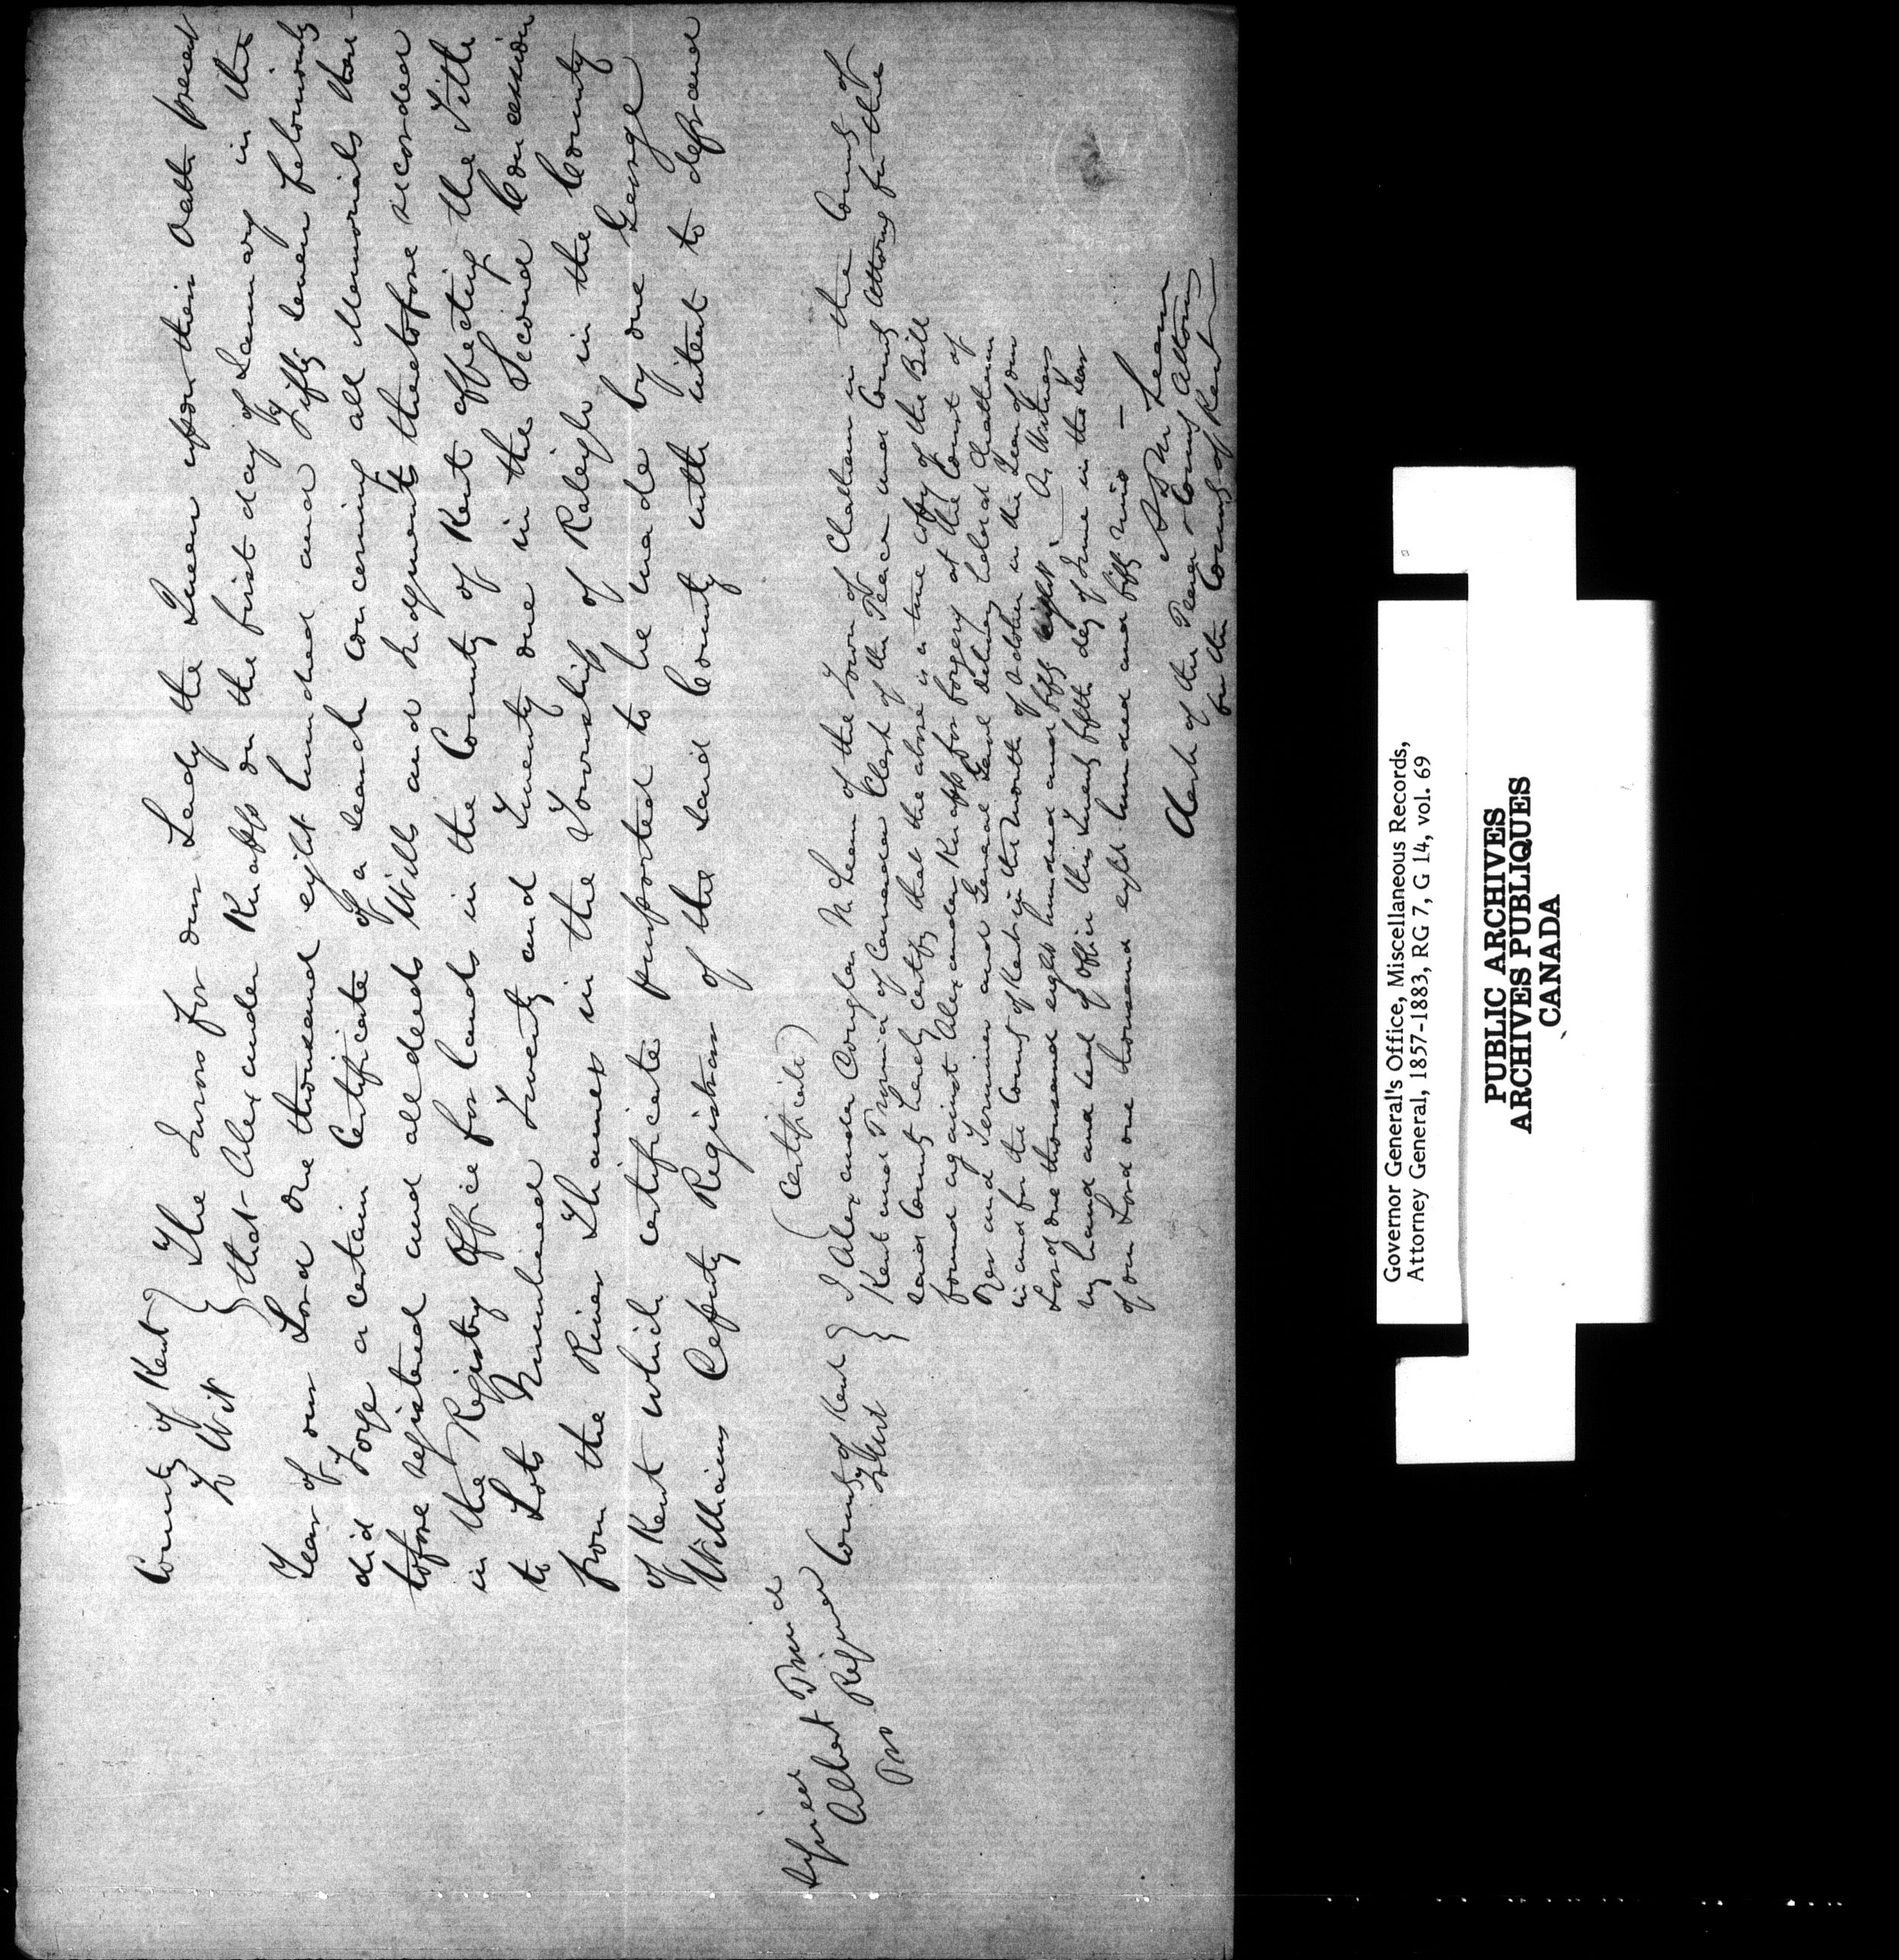 County of Kent } The Jurors for our Lady the Queen upon their Oath present
To Wit } that Alexander Knapp on the first day of January in the
Year of our Lord one thousand eight hundred and Fifty seven feloniously
did Forge a certain Certificate of a search concerning all Memorials there-
tofore registered and all deeds Wills and Judgments theretofore recorded
in the Registry Office for lands in the County of Kent affecting the Title
to Lots Numbered Twenty and Twenty one in the Second Concession
from the River Thames in the Township of Raleigh in the County
of Kent which certificate purported to be made by one George
Williams Deputy Registrar of the said County with intent to defraud
Albert
(Certificate)
County of Kent } I Alexander Douglas McLean of the Town of Chatham in the County of
To Wit } Kent and Province of Canada Clerk of the Peace and County Attorney for the
said County hereby certify that the above is a true copy of the Bill
found against Alexander Knapp for forgery at the Court of
Oyer and Terminer and General Gaol delivery holden at Chatham
in and for the County of Kent in the month of October in the Year of our
Lord one thousand eight hundred and fifty eight. As Witness
my hand and seal of office this Twenty fifth day of June in the Year
of our Lord one thousand eight hundred and fifty nine —
A D McLean
Clerk of the Peace & County Attorney
for the County of Kent
Governor General's Office, Miscellaneous Records,
Attorney General, 1857-1883, RG 7, G 14, vol. 69
PUBLIC ARCHIVES
ARCHIVES PUBLIQUES
CANADA